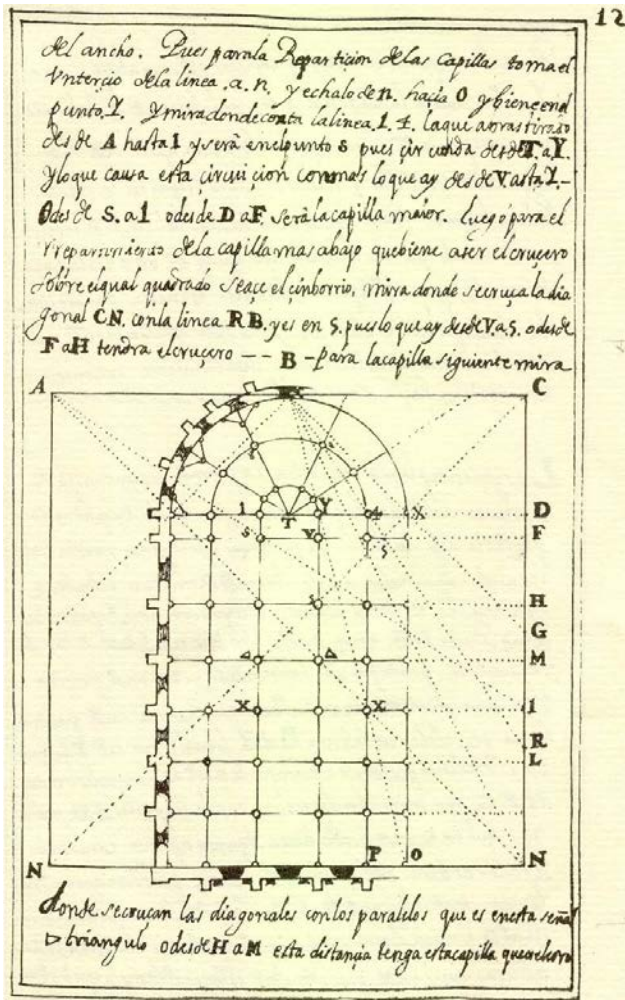 12
del ancho. Pues parala Reparticion delas capillas toma el
Untercio dela linea .a.n. y echalo de n. hacia O y biene en el
punto. 1. y mira donde corta lalinea. 1. 4. laque
desde A hasta 1 y serà enel punto s pues desde T. a Y.
y lo que causa esta con mas lo que ay desde V. asta Y.-
O desde S. a 1 o desde D a F. serà la capilla maior. luego para el
dela capilla mas abajo que biene a ser el cruçero
sobre el qual quadrado seaçe el çinborrio, mira donde secruça la dia
gonal CN. conla linea RB. y es en S. pues lo que ay desde V. a S. o desde
F a H tendra el cruçero -- B - para lacapilla siguiente mira
A C
1 T Y 4 X D
s V S F
H
G
M
X X 1
R
L
N P O N
donde secruçan las diagonales conlos paralelos que es enesta señal
▷ triangulo o desde H a M esta distançia tenga estacapilla